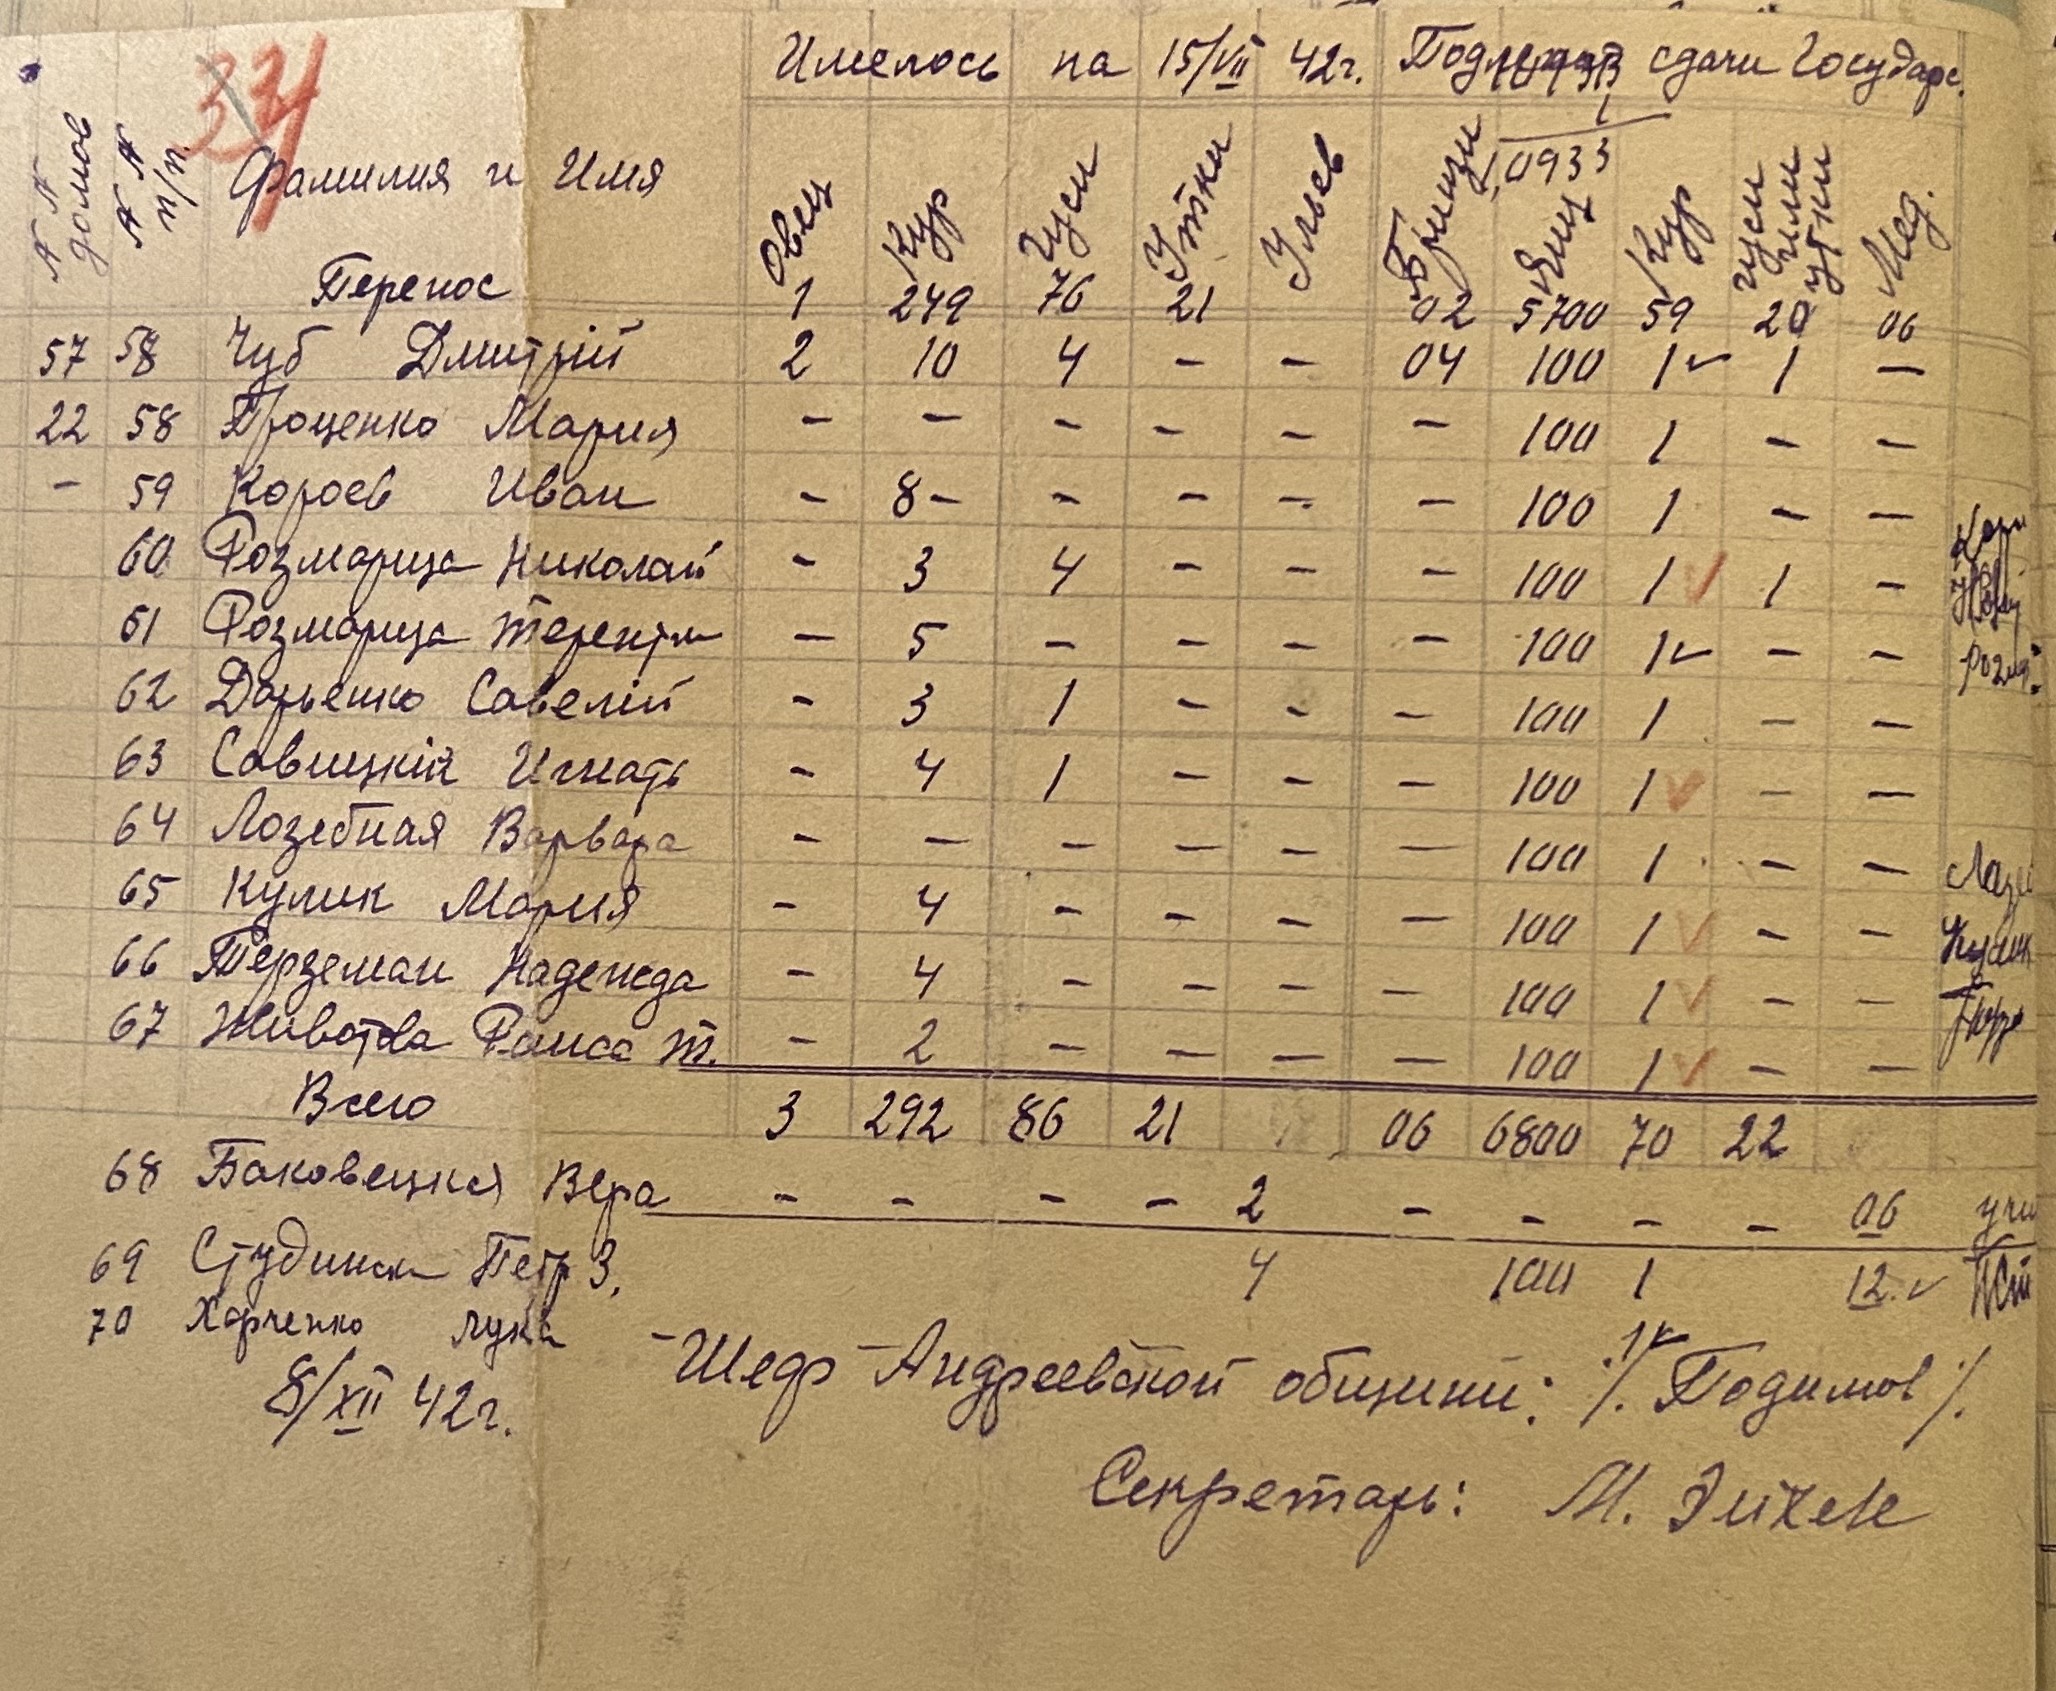 Имелось на 15/VII 42г. Подлежат сдачи Государс.
№ № домов № № п/п. Фамилия и Имя Овец Кур Гуси Утки Ульев Брынзи Яиц Кур Гуси или утки Мед.
0933
Перенос 1 249 76 21 02 5700 59 20 06
57 58 Чуб Дмитрій 2 10 4 – – 04 100 1 ✓ 1 –
22 58 Проценко Мария – – – – – – 100 1 – –
– 59 Короев Иван – 8 – – – – – 100 1 – –
60 Розмарица Николай – 3 4 – – – 100 1 ✓ 1 –
61 Розмарица Терентій – 5 – – – – 100 1 ✓ – –
62 Дарьенко Савелій – 3 1 – – – 100 1 – –
63 Савицкій Игнать – 4 1 – – – 100 1 ✓ – –
64 Лозебная Варвара – – – – – – 100 1 – –
65 Кулик Мария – 4 – – – – 100 1 ✓ – – Кулик
66 Терземан Надежда – 4 – – – – 100 1 ✓ – –
67 Животова Раиса Т. – 2 – – – – 100 1 ✓ – –
Всего 3 292 86 21 06 6800 70 22
68 Баковецкая Вера – – – – 2 – – – – 06 учи
69 Студинск Петр З. 4 100 1 12. ✓
70 Харченко Лука
8/XII 42г.
– Шеф – Андреевской общини: /. Подимов /.
Секретарь: М. Эйхеле